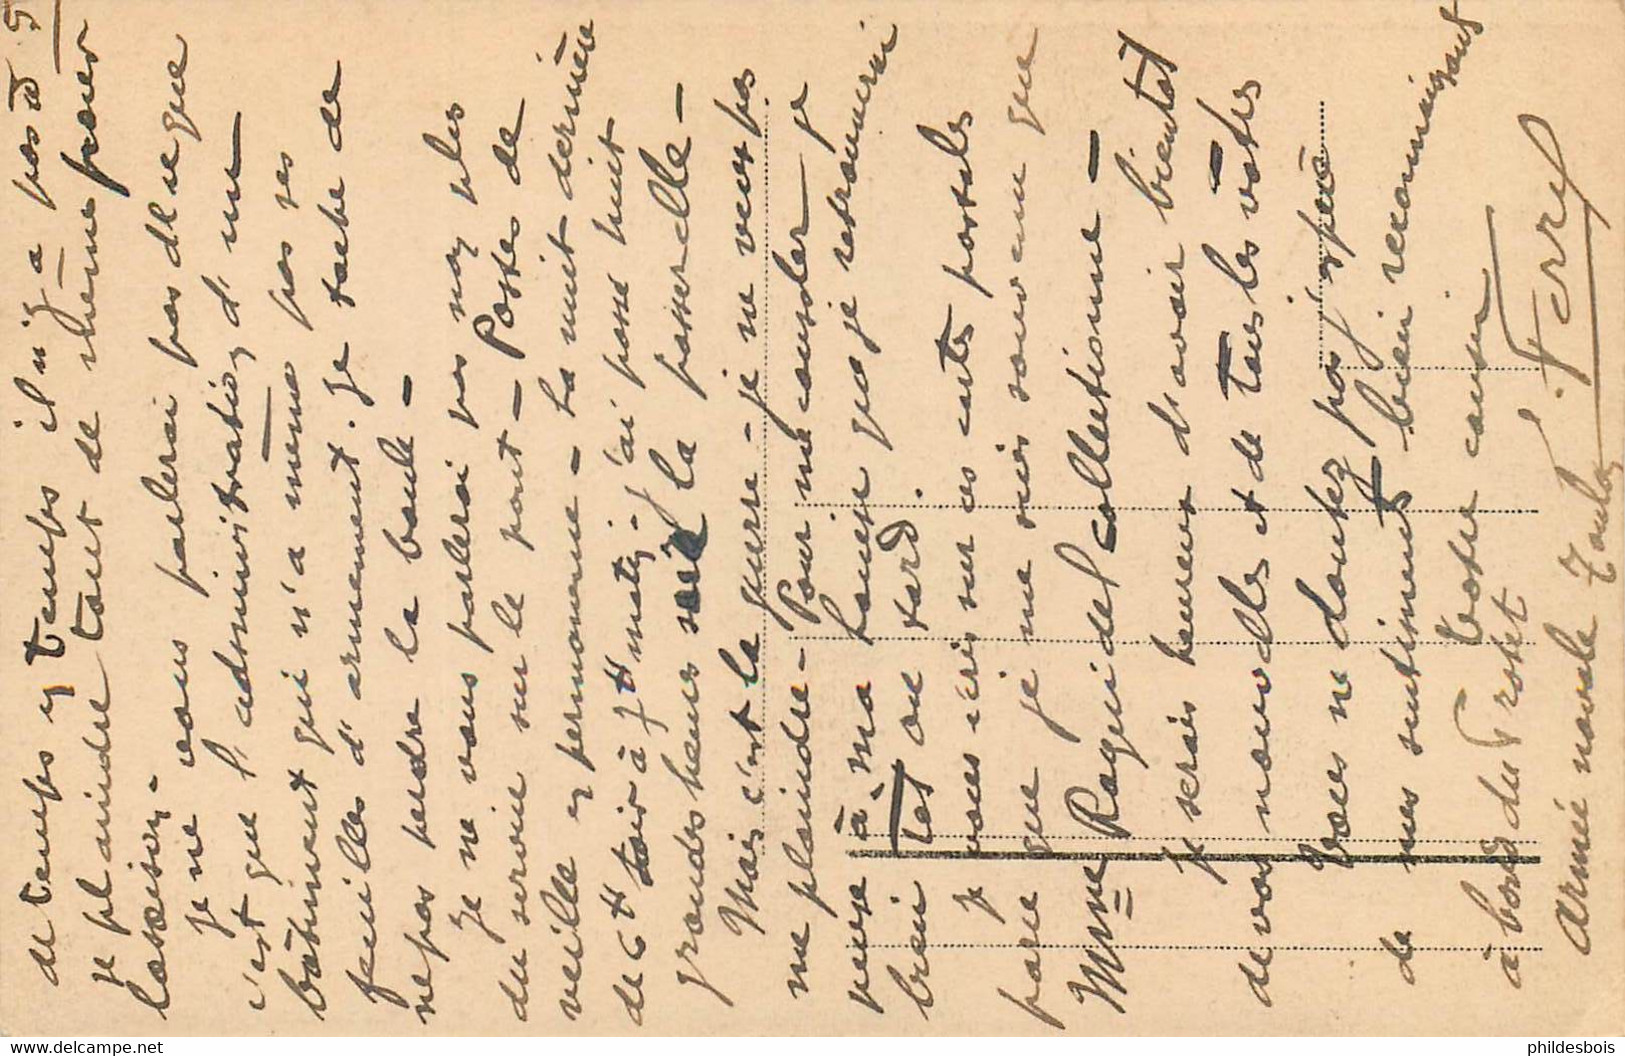 de temps y temps il n'y a pas à 5
je plaindre tout de même pour
la saison -
je ne vous parlerai pas de ce que
c'est que l'administration d'un
bâtiment qui n'a même pas ses
feuilles d'armement. Je tache de
ne pas perdre la boule -
Je ne vous parlerai pas non plus
du service sur le pont - Postes de
veille en permanence - La nuit dernière
de 6 H soir à 7 H matin - j'ai passé huit
grandes heures sur la passerelle -
Mais c'est la guerre - je ne veux pas
me plaindre - Pour me consoler je
pense à ma Louise que je retrouverai
bien tot ou tard.
Je vous écris sur ces cartes postales
parce que je me suis souvenu que
Mme Raguidel collectionne -
Je serais heureux d'avoir bientot
de vos nouvelles et de tous les votres -
Vous ne doutez pas j'espère
de mes sentiments bien reconnaissants
Votre cousin
F. Ferrel
à bord du
Armée navale Toulon
www.delcampe.net
phildesbois